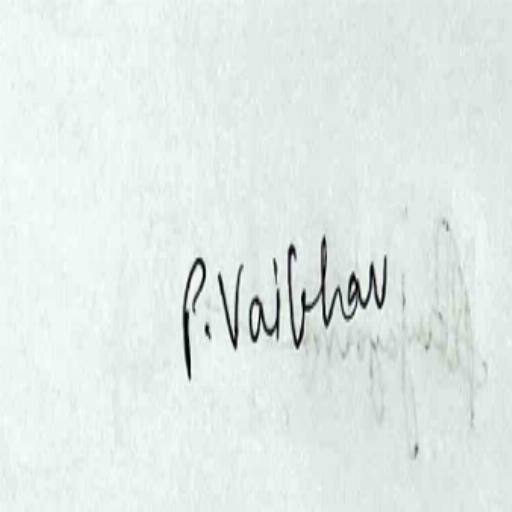 P. Vaibhav